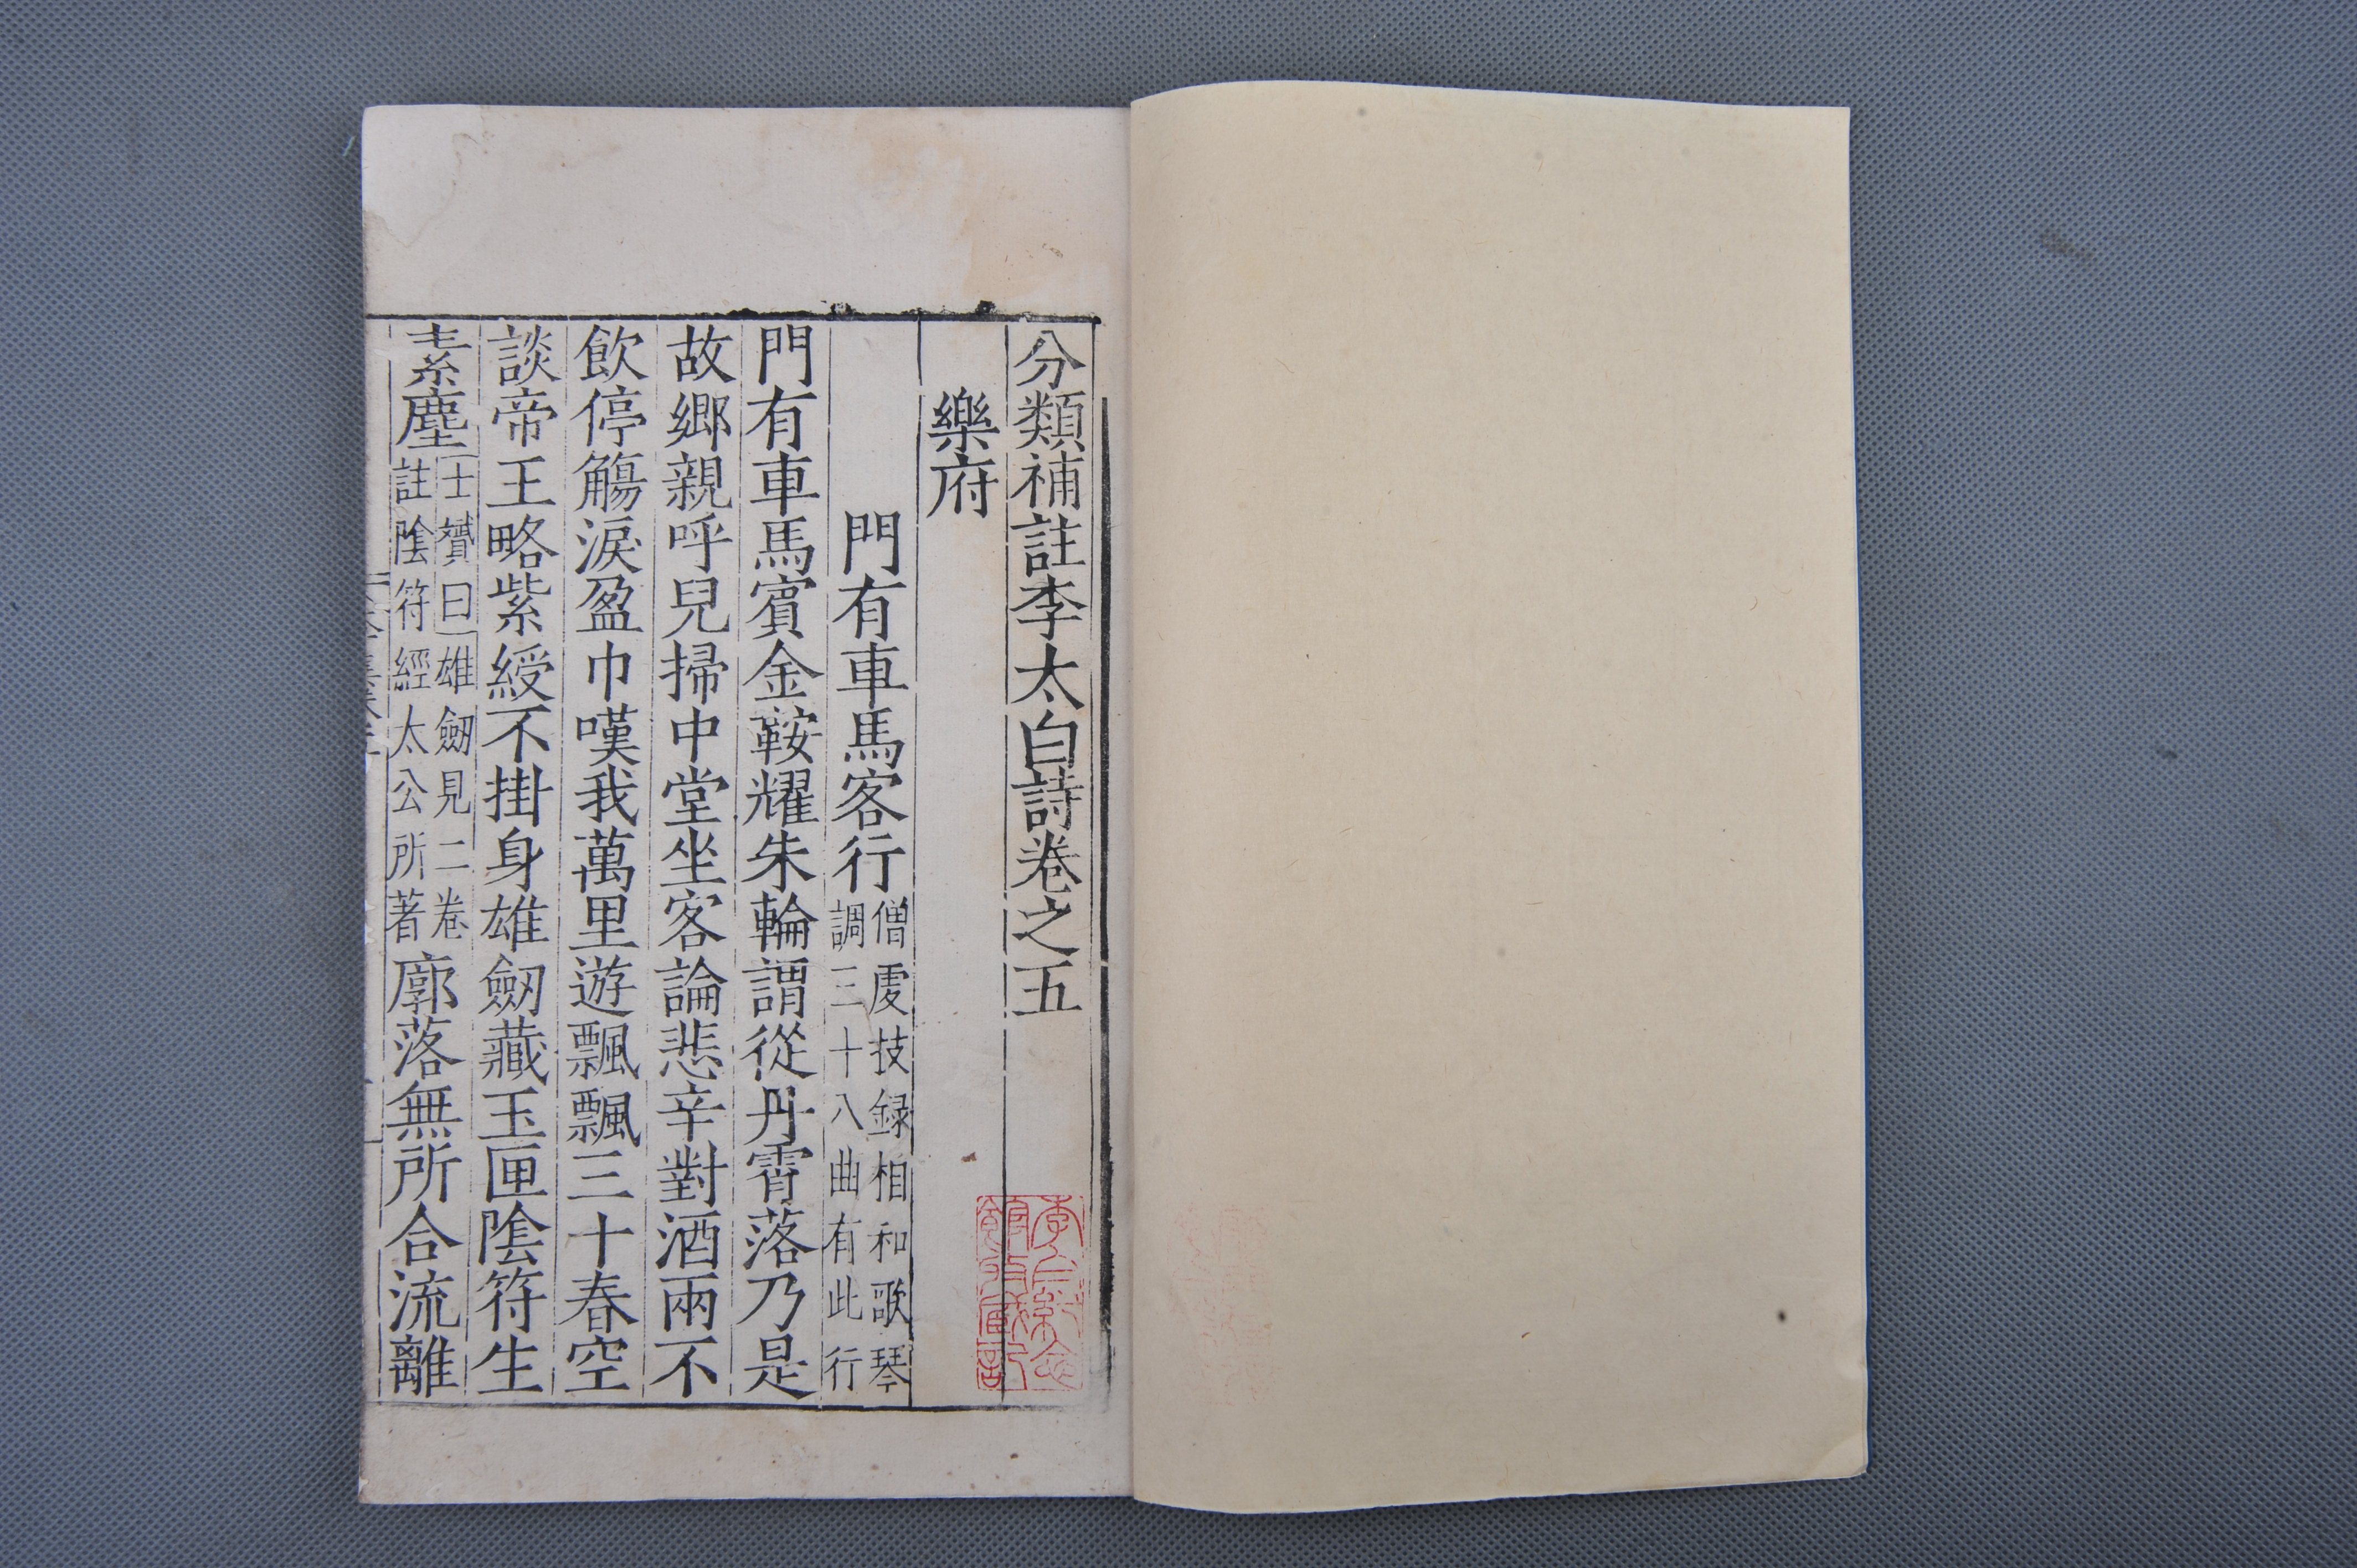 分類補註李太白詩卷之五
樂府
門有車馬客行僧虔技録相和歌琴調三十八曲有此行
門有車馬賔金鞍耀朱輪謂從丹霄落乃是
故鄉親呼兒掃中堂坐客論悲辛對酒兩不
飲停觴淚盈巾嘆我萬里遊飄飄三十春空
談帝王略紫綬不掛身雄劒藏玉匣陰符生
素塵士贇曰雄劒見二卷註陰符經太公所著廓落無所合流離